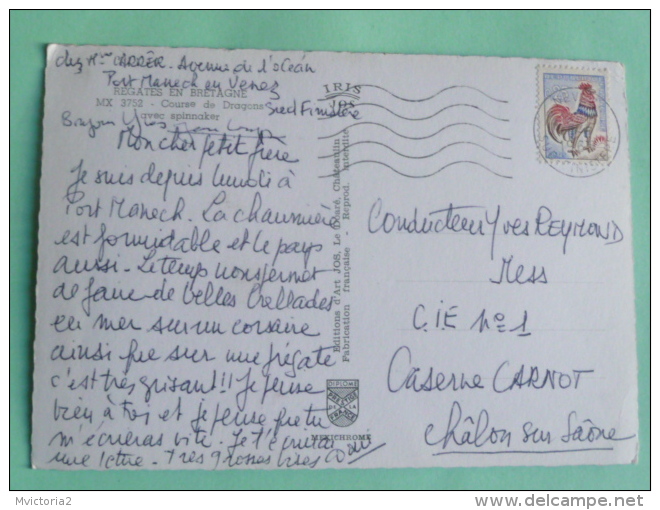 chez Mme CARRER - Avenue de l'océan
Port Manech en Nevez
REGATES EN BRETAGNE
MX 3752 - Course de Dragons
Sud Finistère
avec spinnaker
Yves
Mon cher petit frère
Je suis depuis lundi à
Port Manech. La chaumière
est formidable et le pays
aussi. Le temps nous permet
de faire de belles ballades
en mer sur un corsaire
ainsi que sur une frégate
c'est très grisant!! Je pense
bien à toi et je pense que tu
m'écriras vite. Je t'écrirai
une lettre. Très grosses bises
IRIS
JOS
Editions d'Art JOS, Le Doaré, Chateaulin
Fabrication française - Reprod. interdite
DIPLOME
PRESTIGE
DE LA
FRANCE
MEXICHROME
Conducteur Yves REYMOND
Mess
C.I.E n° 1
Caserne CARNOT
Châlon sur Saône
Mvictoria2
delcampe.net